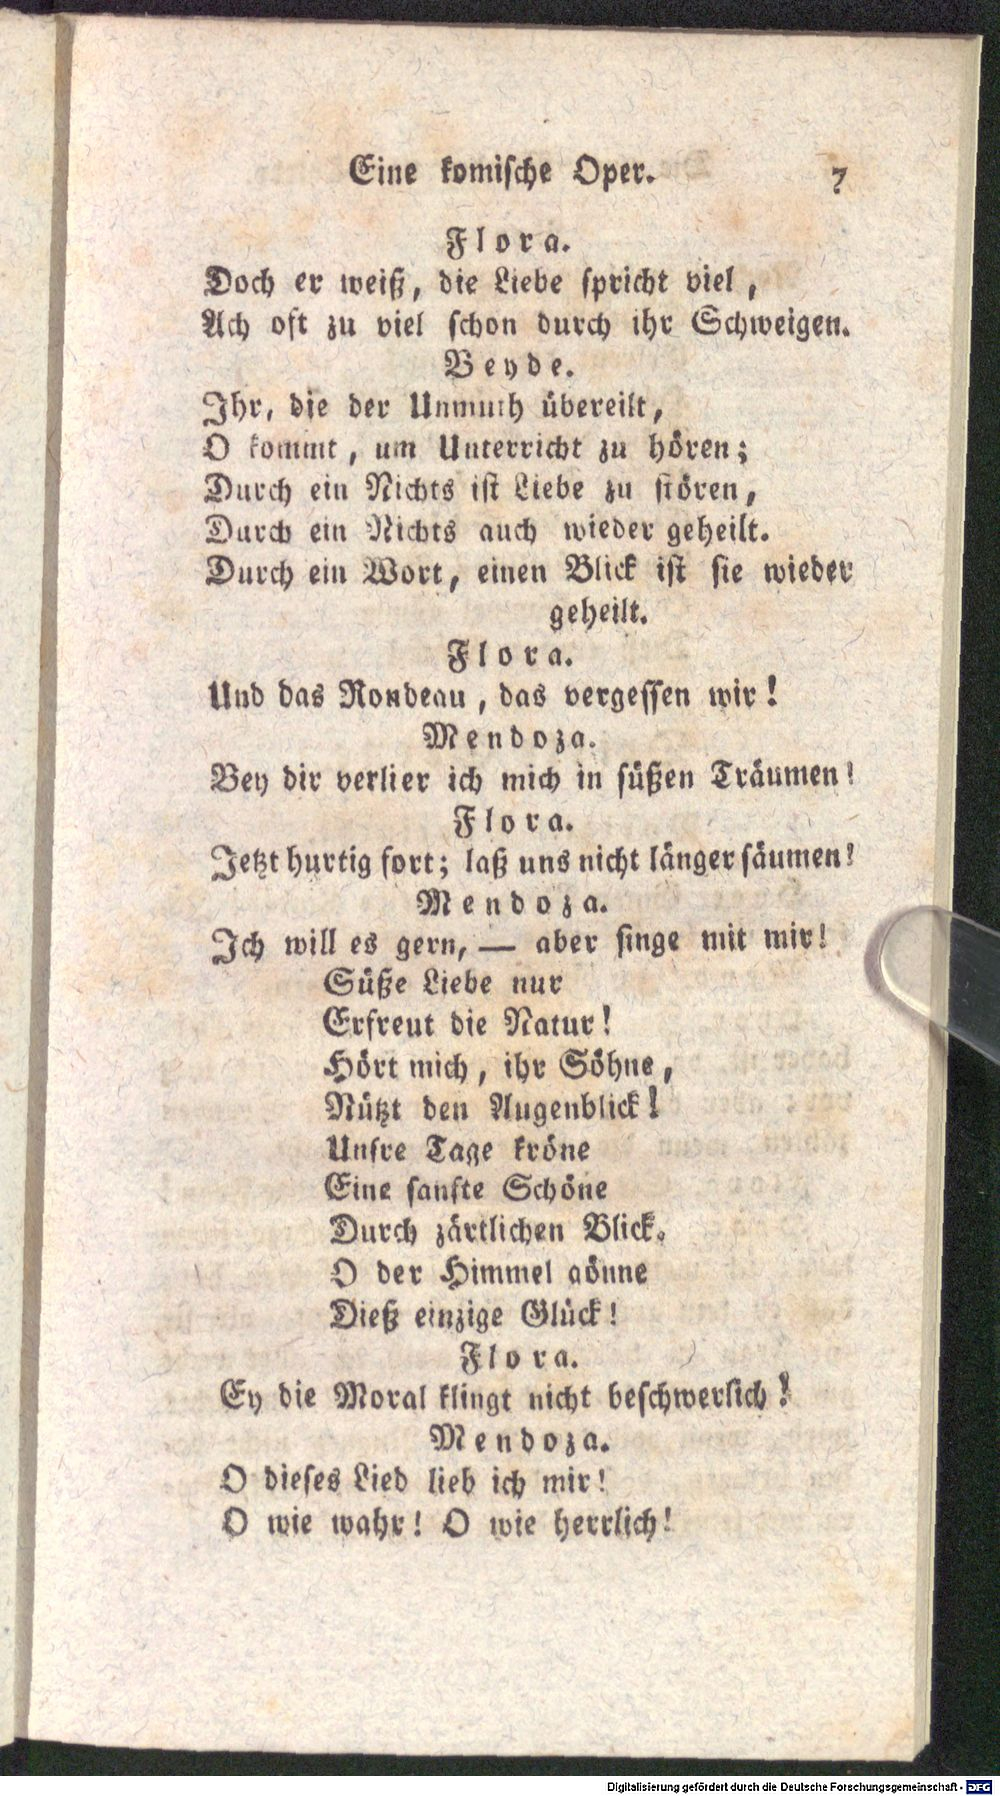 Eine komische Oper. 7
Flora.
Doch er weiß, die Liebe spricht viel,
Ach oft zu viel schon durch ihr Schweigen.
Beyde.
Ihr, die der Unmuth übereilt,
O kommt, um Unterricht zu hören;
Durch ein Nichts ist Liebe zu stören,
Durch ein Nichts auch wieder geheilt.
Durch ein Wort, einen Blick ist sie wieder
geheilt.
Flora.
Und das Rondeau, das vergessen wir!
Mendoza.
Bey dir verlier ich mich in süßen Träumen!
Flora.
Jetzt hurtig fort; laß uns nicht länger säumen!
Mendoza.
Ich will es gern, — aber singe mit mir!
Süße Liebe nur
Erfreut die Natur!
Hört mich, ihr Söhne,
Nützt den Augenblick!
Unsre Tage kröne
Eine sanfte Schöne
Durch zärtlichen Blick.
O der Himmel gönne
Dieß einzige Glück!
Flora.
Ey die Moral klingt nicht beschwerlich!
Mendoza.
O dieses Lied lieb ich mir!
O wie wahr! O wie herrlich!
Digitalisierung gefördert durch die Deutsche Forschungsgemeinschaft - DFG